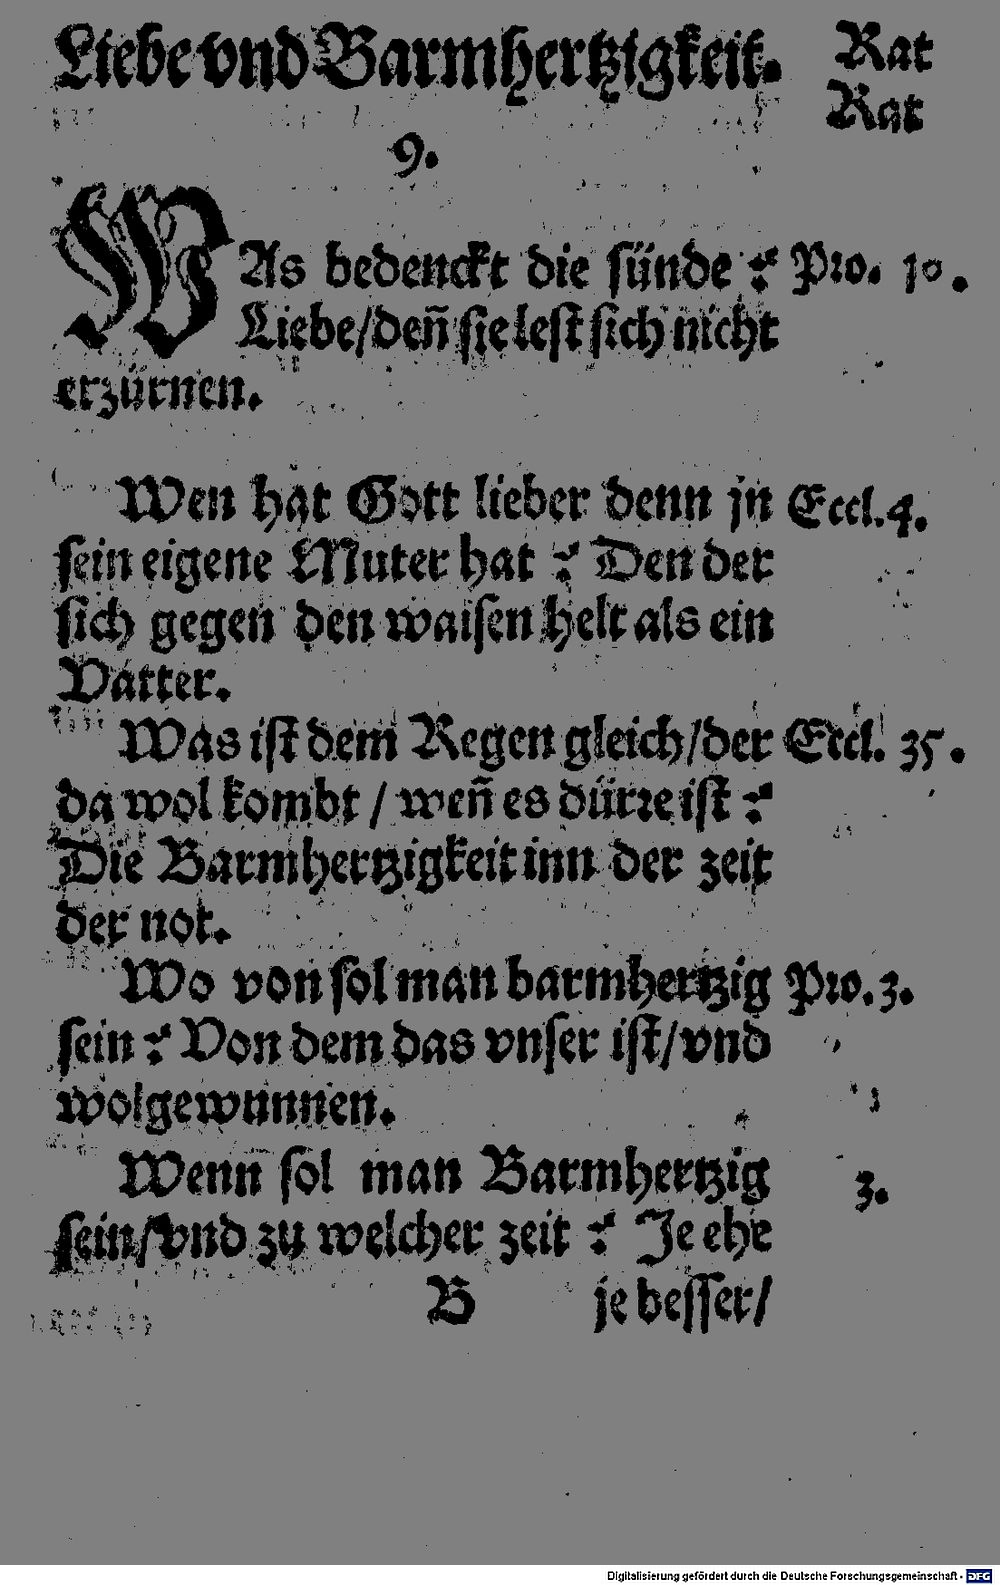 Liebe vnd Barmhertzigkeit. Rat
Rat
9.
WAs bedenckt die sünde ? Pro. 10.
Liebe/deñ sie lest sich nicht
erzürnen.
Wen hat Gott lieber denn jn Eccl. 4.
sein eigene Muter hat ? Den der
sich gegen den waisen helt als ein
Vatter.
Was ist dem Regen gleich/der Eccl. 35.
da wol kombt / weñ es dürre ist ?
Die Barmhertzigkeit inn der zeit
der not.
Wo von sol man barmhertzig Pro. 3.
sein ? Von dem das vnser ist/vnd
wolgewunnen.
Wenn sol man Barmhertzig 3.
sein/vnd zu welcher zeit ? Je ehr
B je besser/
Digitalisierung gefördert durch die Deutsche Forschungsgemeinschaft - DFG